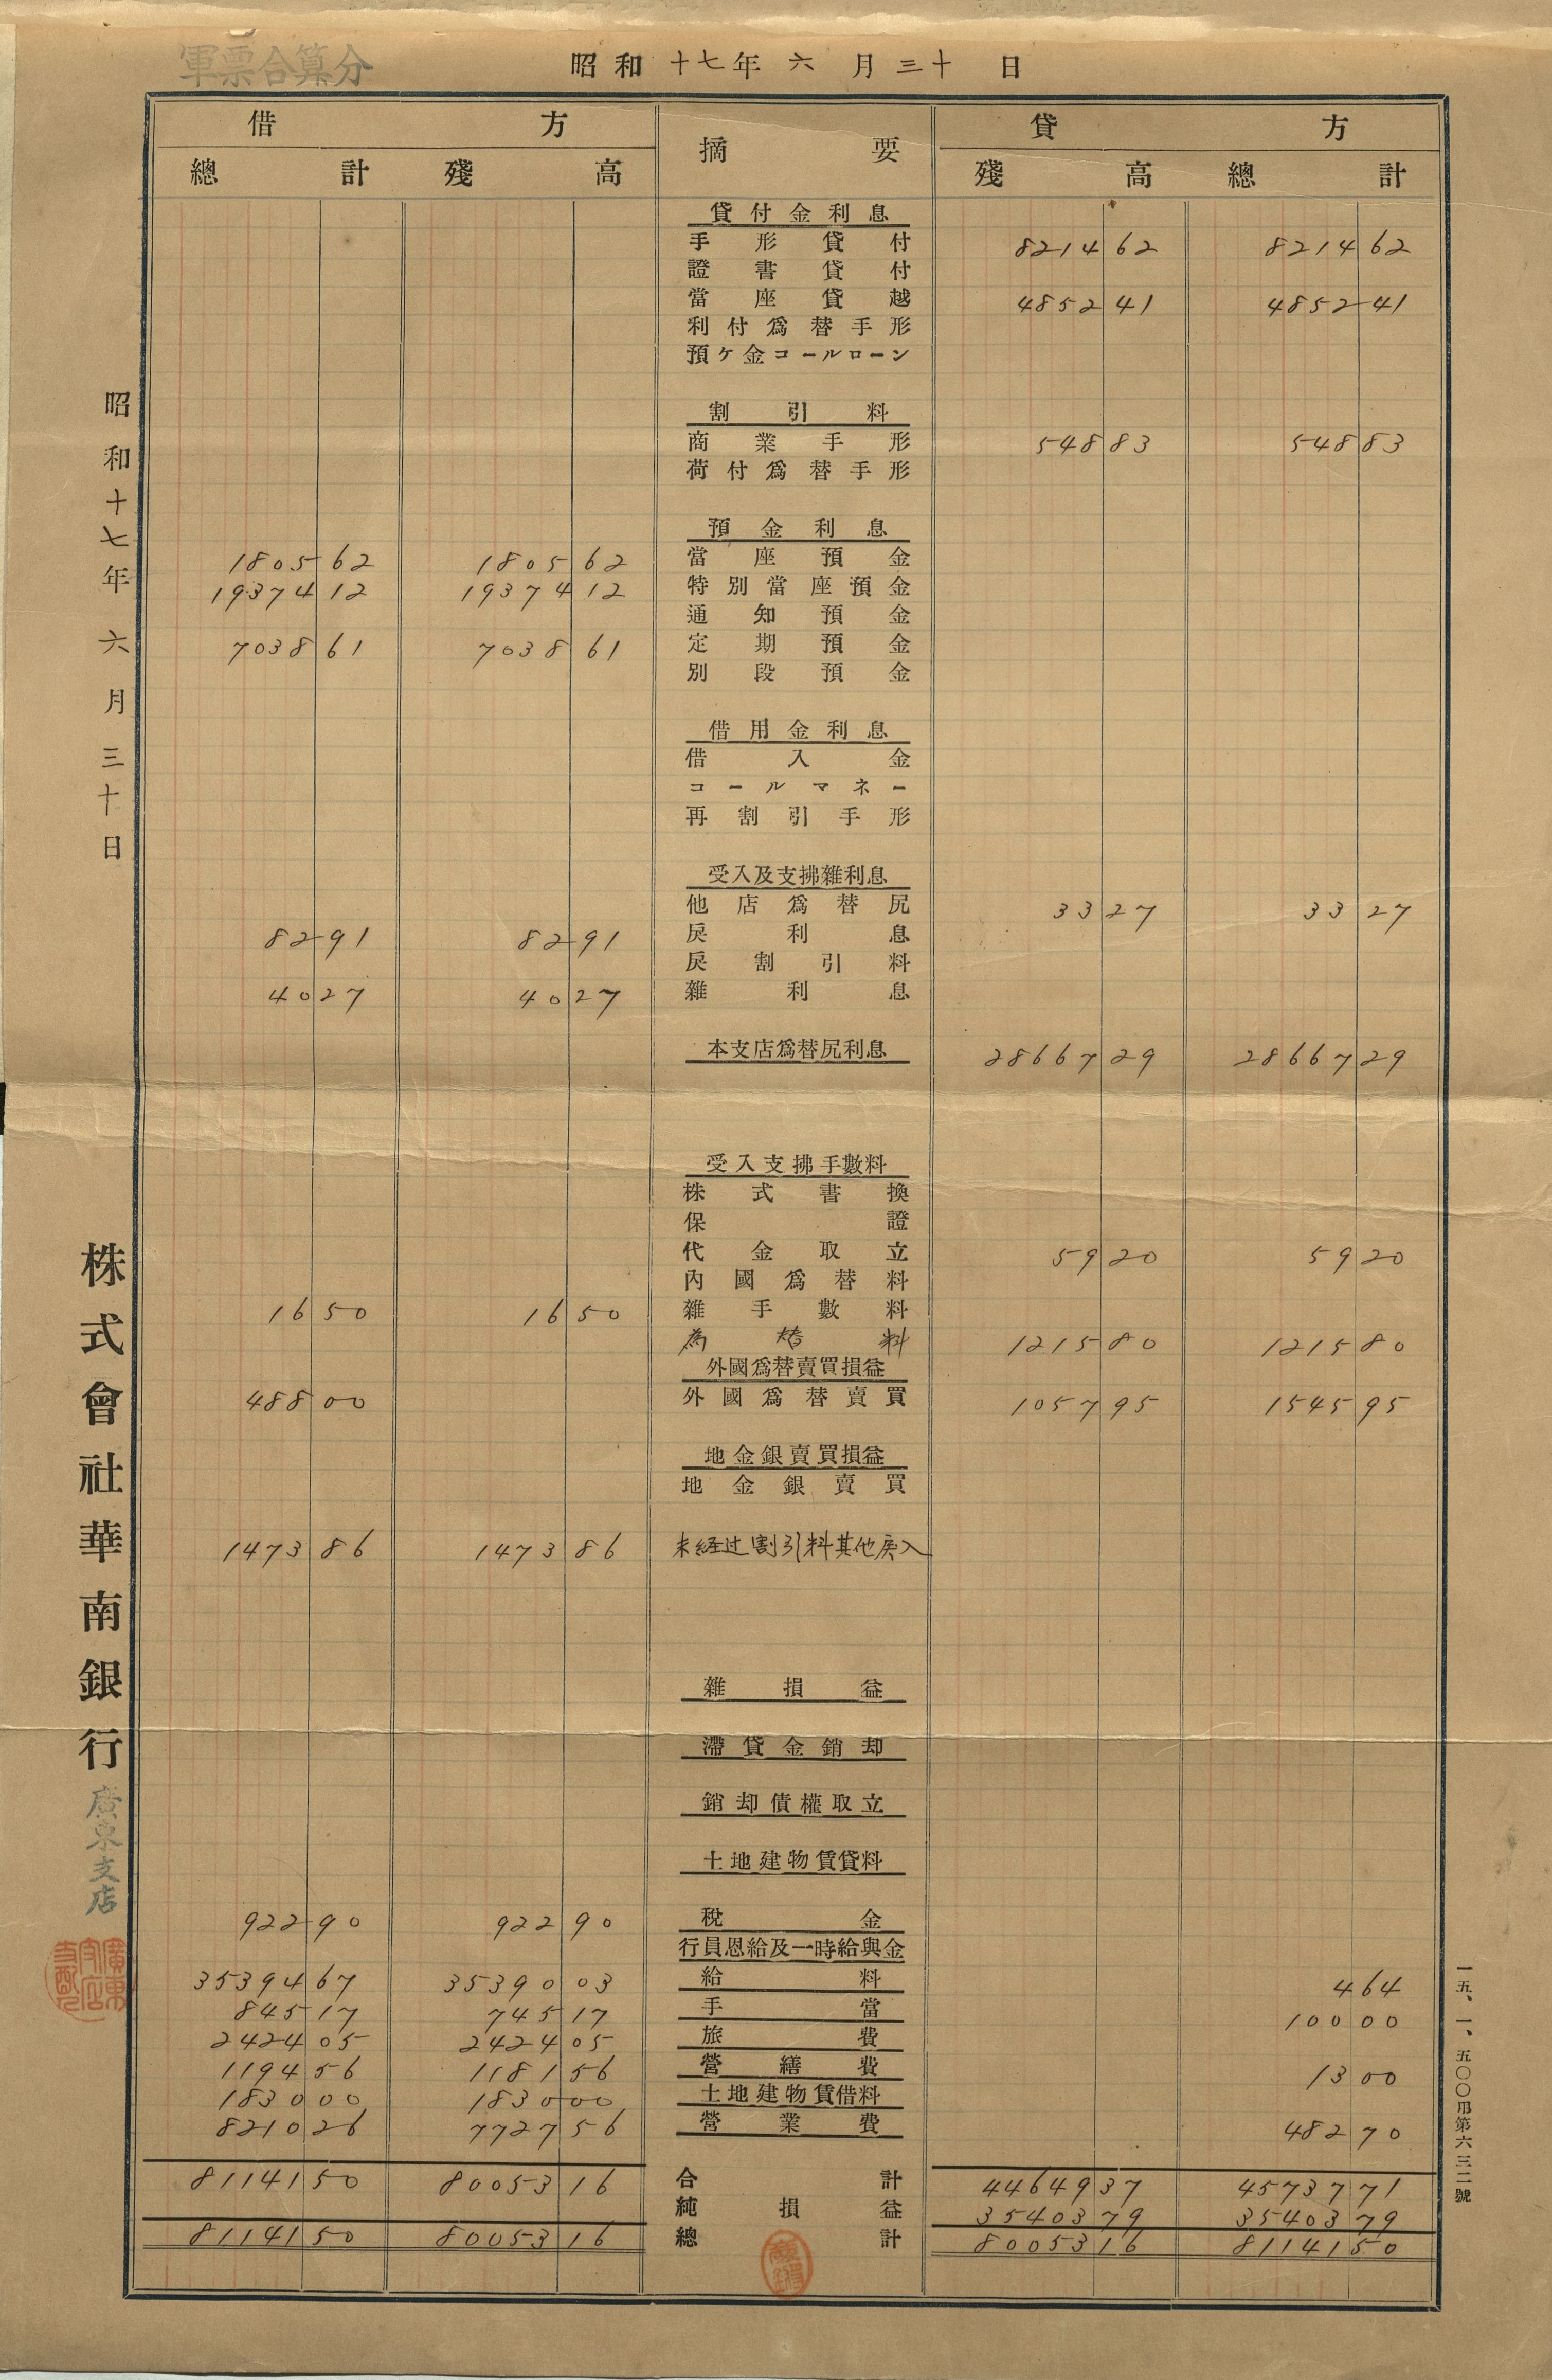 軍票合算分
昭和 十七年 六 月 三十 日
借 方 摘 要 貸 方
總 計 殘 高 殘 高 總 計
貸付金利息
手形貸付 8214 62 8214 62
證書貸付
當座貸越 4852 41 4852 41
利付爲替手形
預ケ金コールローン
割引料
商業手形 548 83 548 83
荷付爲替手形
預金利息
1805 62 1805 62 當座預金
19374 12 19374 12 特別當座預金
通知預金
7038 61 7038 61 定期預金
別段預金
借用金利息
借入金
コールマネー
再割引手形
受入及支拂雜利息
他店爲替尻 33 27 33 27
82 91 82 91 戾利息
戾割引料
40 27 40 27 雜利息
本支店爲替尻利息 28667 29 28667 29
受入支拂手數料
株式書換
保證
代金取立 59 20 59 20
內國爲替料
16 50 16 50 雜手數料
為替料 1215 80 1215 80
外國爲替賣買損益
488 00 外國爲替賣買 1057 95 1545 95
地金銀賣買損益
地金銀賣買
1473 86 1473 86 未経过割引料其他戻入
雜損益
滯貸金銷却
銷却債權取立
土地建物賃貸料
922 90 922 90 稅金
行員恩給及一時給與金
35394 67 35390 03 給料 4 64
845 17 745 17 手當 100 00
2424 05 2424 05 旅費
1194 56 1181 56 營繕費 13 00
1830 00 1830 00 土地建物賃借料
8210 26 7727 56 營業費 482 70
81141 50 80053 16 合計 44649 37 45737 71
純損益 35403 79 35403 79
81141 50 80053 16 總計 80053 16 81141 50
昭和十七年 六 月 三十日
株式會社華南銀行 廣東支店
一五、一、五〇〇用第六三二號